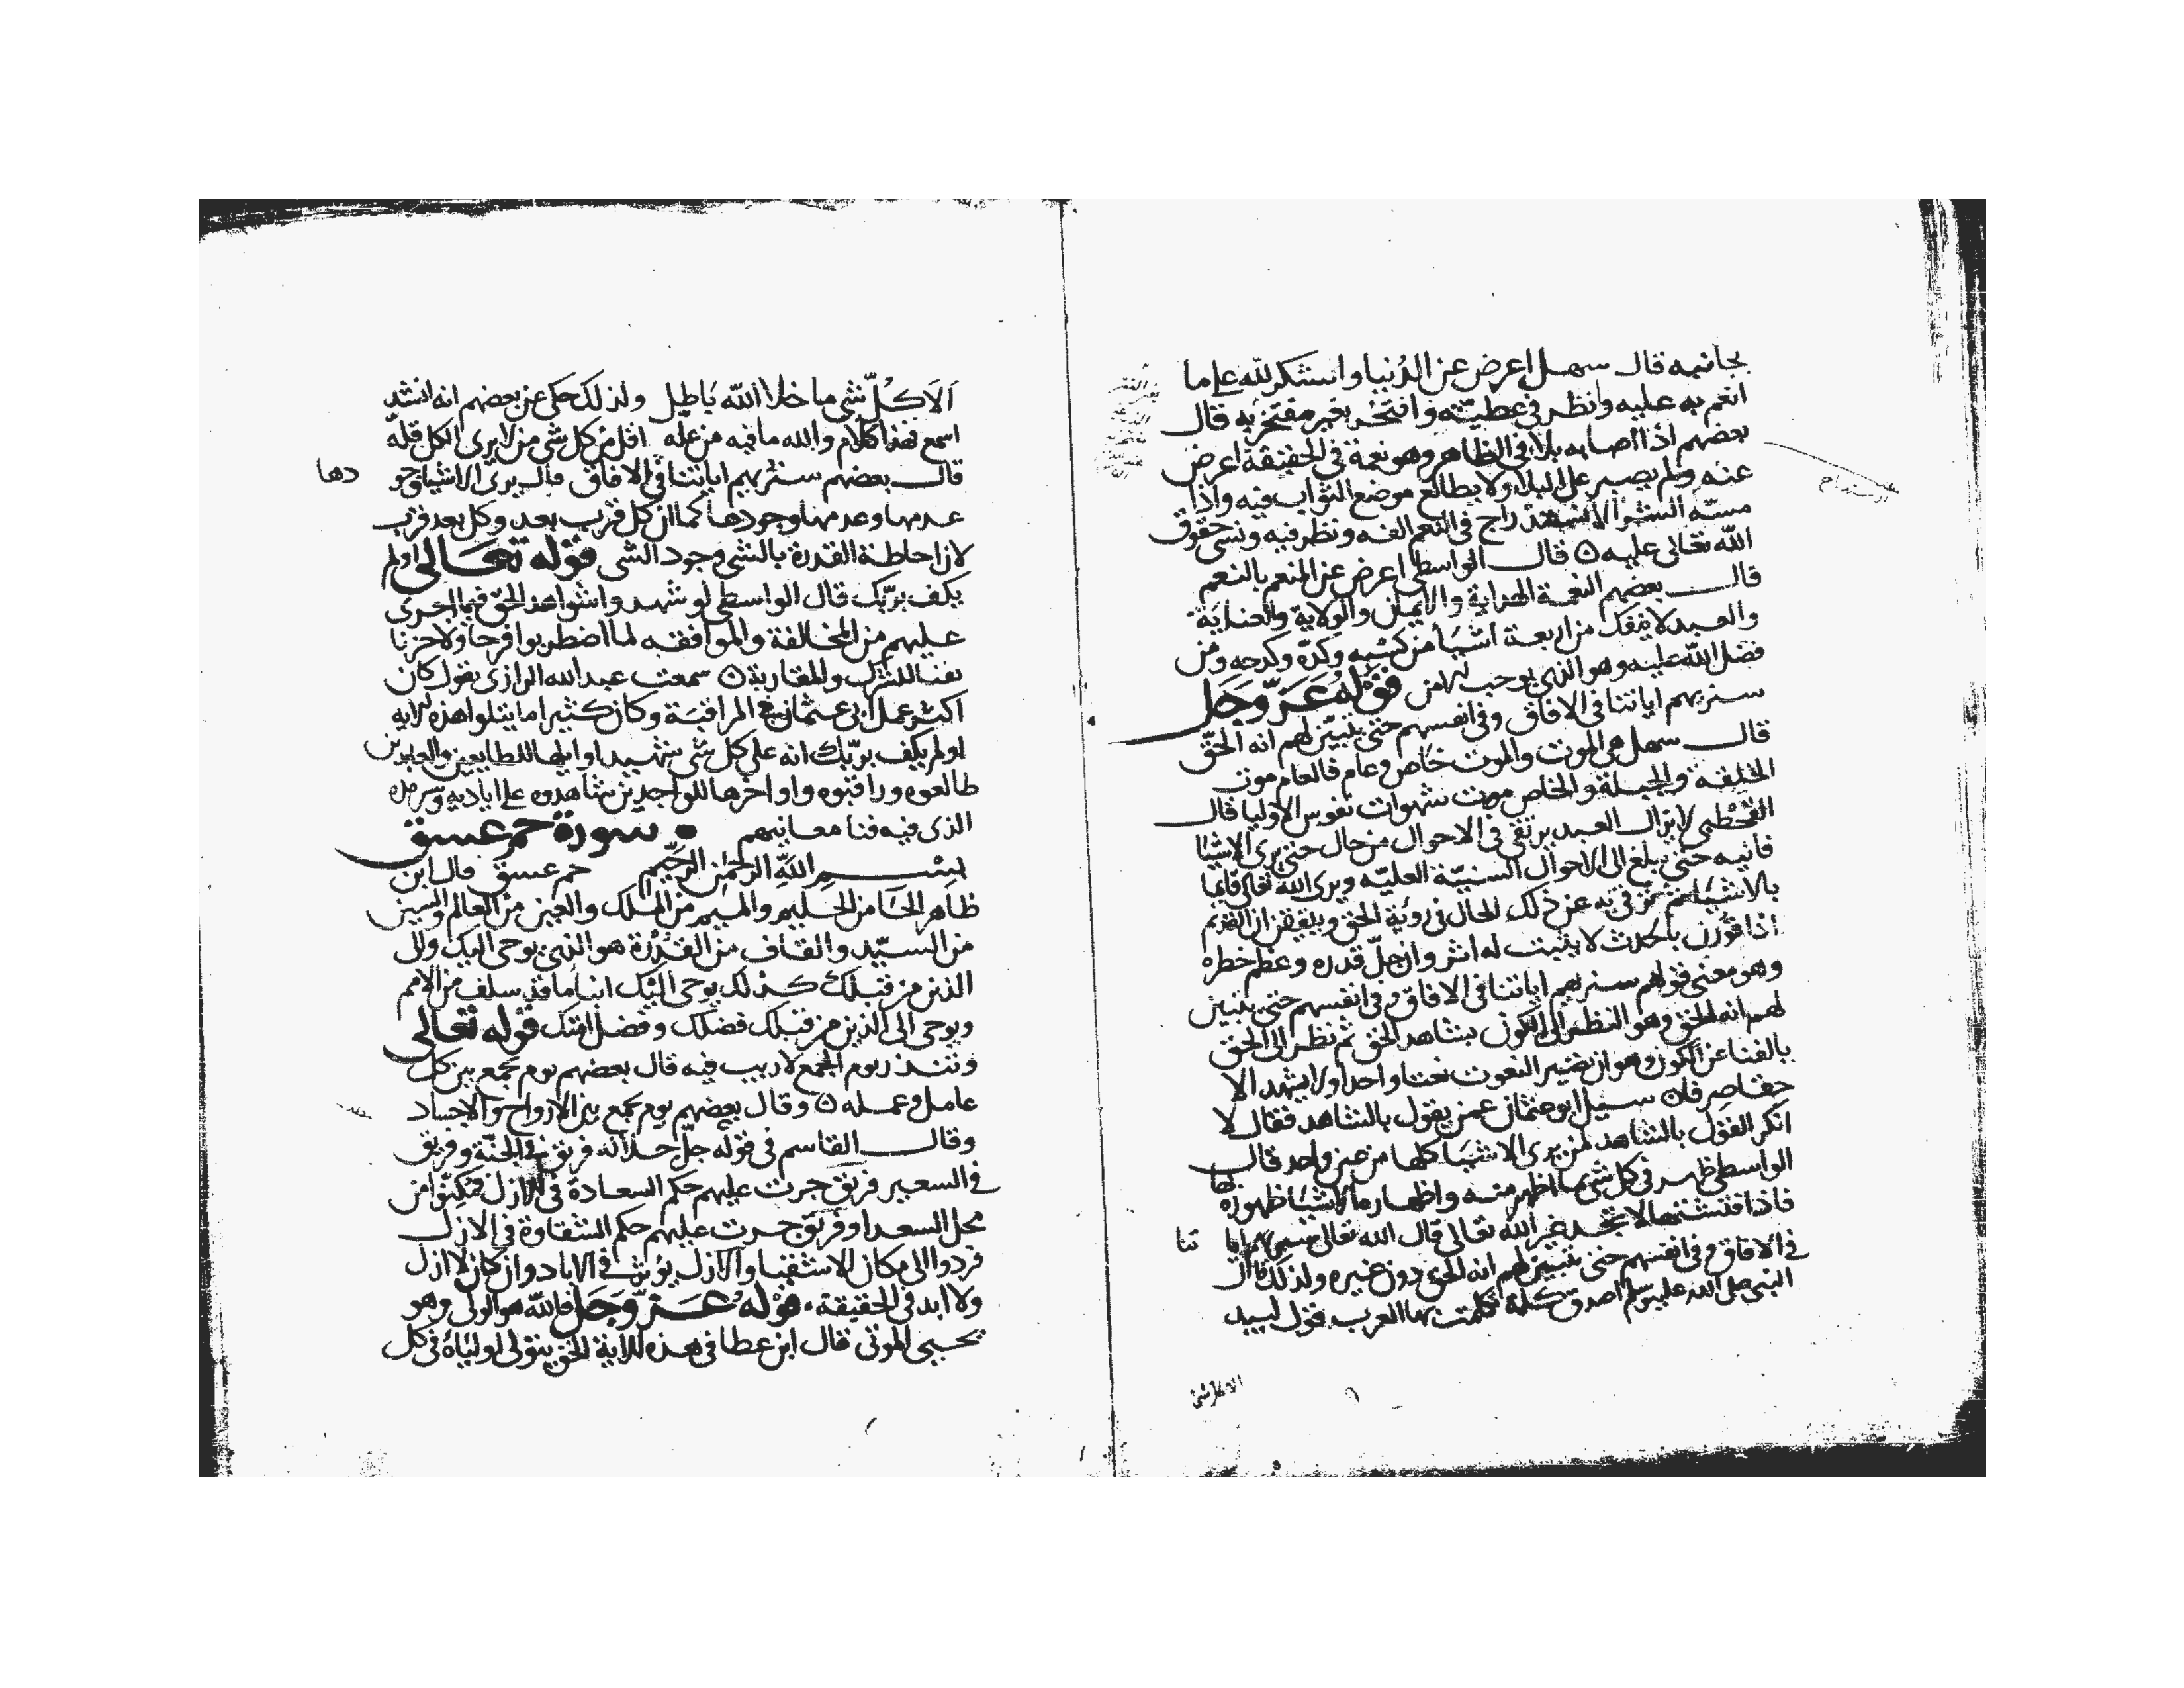 بجانبه قال سهل اعرض عن الدنيا وانشكر لله على ما
انعم به عليه وانظر فى عطيته وافتخر بغير مفتخر به قال
بعضهم اذا اصابه بلا فى الظاهر وهو نعمة فى الحقيقة اعرض
عنه ولم يصبر على البلا ولا يطالع موضع الثواب فيه واذا
مسه الشر الاستدراج فى النعم الفه ونظر فيه ونسى حقوق
الله تعالى عليه ○ قال الواسطى اعرض عن المنعم بالنعم
قال بعضهم النعمة الهداية والايمان والولاية والعناية
والعبد لا ينفك من اربعة اشيا من كسبه وكده وكدحه ومن
فضل الله عليه وهو الذى يوجب قوله عز وجل
سنريهم اياتنا فى الافاق وفى انفسهم حتى يتبين لهم انه الحق
قال سهل هى الموت والموت خاص وعام فالعام موت
الخلقة والجبلة والخاص موت شهوات نفوس الاوليا قال
القحطبى لا يزال العبد يرتقى فى الاحوال من حال حتى يرى الاشيا
فانيه حتى يبلغ الى الاحوال السنية العلية ويرى الله تعالى قايما
بالاشيا ثم يرقى به عن ذلك الحال فى روية الحق ويتيقن ان القديم
اذا قورن بالحدث لا يثبت له اثر وان جل قدره وعظم خطره
وهو معنى قولهم سنريهم اياتنا فى الافاق وفى انفسهم حتى يتبين
لهم انه الحق وهو النظر الى الكون بشاهد الحق ثم نظر الى الحق
بالفنا عن الكون وهو ان تصير النعوت نعتا واحدا ولا يشهد الا
حقا صرفا ○ سيل ابو عثمان عمن يقول بالشاهد فقال لا
انكر القول بالشاهد لمن يرى الاشيا كلها من عين واحد قال
الواسطى ظهر فى كل شى بما اظهر منه واظهاره الاشيا ظهوره بها
فاذا فتشتها لا تجد غير الله تعالى قال الله تعالى سنريهم ايا تنا
فى الافاق وفى انفسهم حتى يتبين لهم انه الحق دون غيره ولذلك قال
النبى صلى الله عليه وسلم اصدق كلمة تكلمت بها العرب قول لبيد
الا كل شى ما خلا الله باطل ولذلك حكى عن بعضهم انه انشد
اسمع هذا كلام والله ما فيه من عله اقل من كل شى من لا يرى الكل قله
قال بعضهم سنريهم اياتنا فى الافاق قال يرى الاشيا وجو دها
عدمها وعدمها وجودها كما ان كل قرب بعد وكل بعد قرب
لان احاطة القدرة بالشى وجود الشى قوله تعالى اولم
يكف بربك قال الواسطى لو شهدوا شواهد الحق فيما اجرى
عليهم من المخالفة والموافقه لما اضطربوا فرحا ولا حزنا
نفنا للشرك وللمقاربة ○ سمعت عبد الله الرازى يقول كان
اكثر عمل ابى عثمان فى المراقبة وكان كثيرا ما يتلوا هذه الايه
اولم يكف بربك انه على كل شى شهيد اوايلها للطايعين والعابدين
طالعوه وراقبوه واواخرها للواجدين شاهدوه على اياديه وسرمده
الذى فيه فنا معانيهم ● سورة حم عسق
بسم الله الرحمن الرحيم حم عسق قال ابن
ظاهر الحا من الحليم والميم من الملك والعين من العالم والسين
من السيد والقاف من القدرة هو الذى يوحى اليك والى
الذين من قبلك كذلك يوحى اليك انبا ما قد سلف من الامم
ويوحى الى الذين من قبلك فضلك وفضل امتك قوله تعالى
وتنذر يوم الجمع لا ريب فيه قال بعضهم يوم يجمع بين كل
عامل وعمله ○ وقال بعضهم يوم يجمع بين الارواح والاجساد
وقال القاسم فى قوله جل جلاله فريق فى الجنة وفريق
فى السعير فريق جرت عليهم حكم السعادة فى الازل فمكنوا من
محل السعدا وفريق جرت عليهم حكم الشقاوة فى الازل
فردوا الى مكان الاشقيا والازل يوثر فى الاباد وان كان لا ازل
ولا ابد فى الحقيقة ، قوله عز وجل فالله هو الولى وهو
يحيى الموتى قال ابن عطا فى هذه الاية الحق يتولى اولياه فى كل